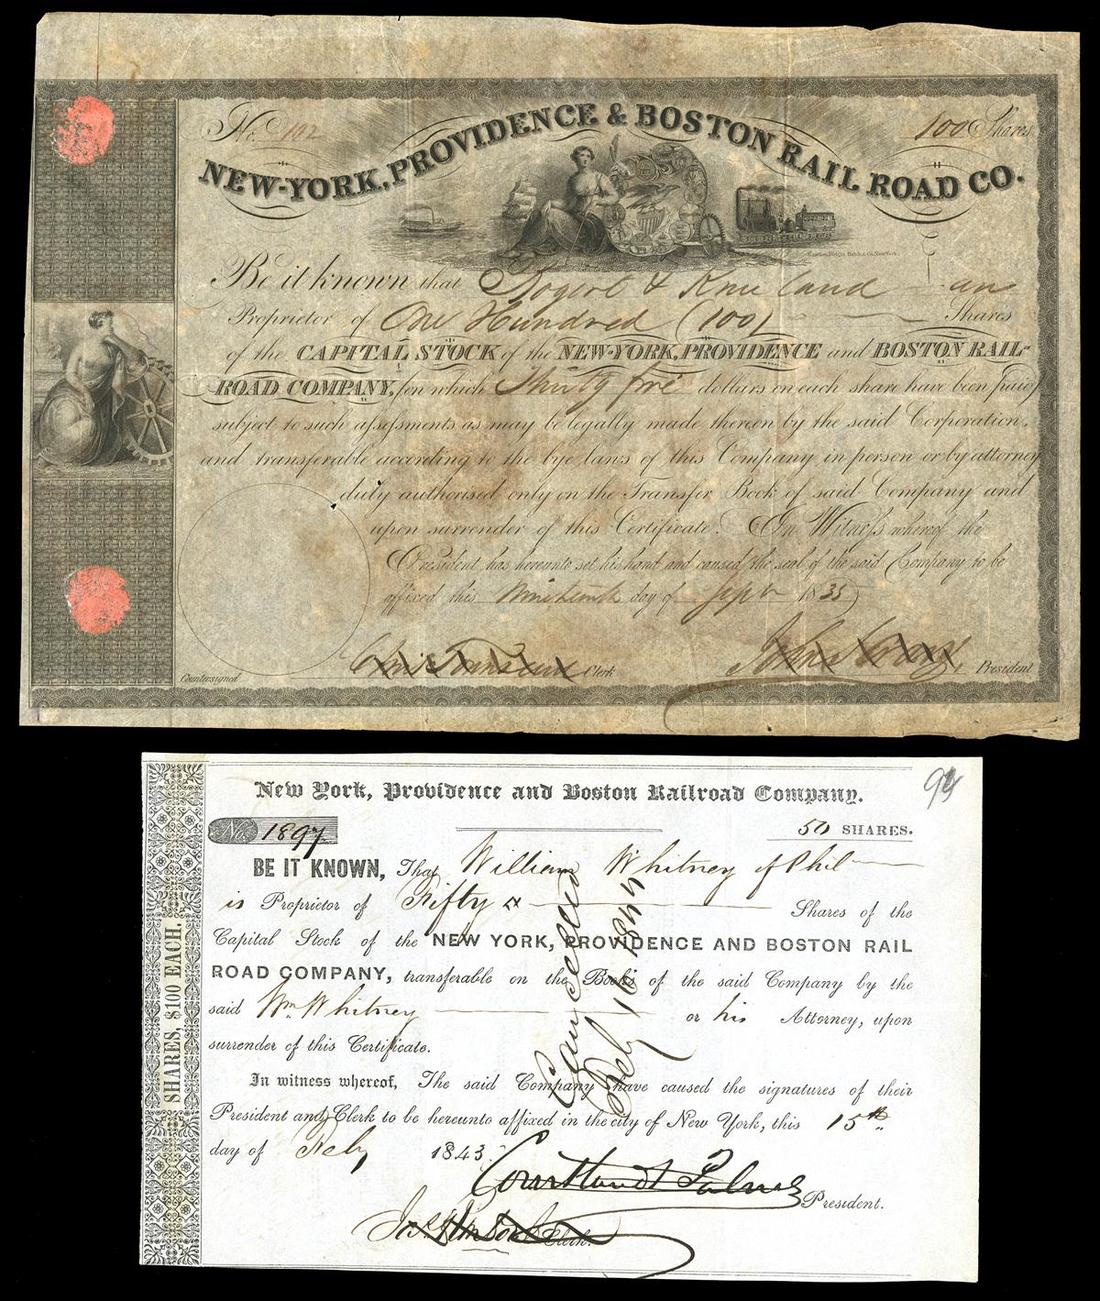 No. 102
100 Shares
NEW-YORK, PROVIDENCE & BOSTON RAIL ROAD CO.
Be it known that Rogers & Kneeland an
Proprietor of One Hundred (100) Shares
of the CAPITAL STOCK of the NEW-YORK, PROVIDENCE and BOSTON RAIL-
ROAD COMPANY, on which Thirty five dollars on each share have been paid
subject to such assessments as may be legally made thereon by the said Corporation,
and transferable according to the bye laws of this Company in person or by attorney
duly authorised only on the Transfer Book of said Company and
upon surrender of this Certificate. In Witness whereof the
President has hereunto set his hand and caused the seal of the said Company to be
affixed this Nineteenth day of Sept 1835
Clerk
President
Countersigned
94
New York, Providence and Boston Railroad Company.
No. 1897
50 SHARES.
BE IT KNOWN, That William Whitney of Phil
is Proprietor of Fifty Shares of the
Capital Stock of the NEW YORK, PROVIDENCE AND BOSTON RAIL
ROAD COMPANY, transferable on the Books of the said Company by the
said Wm Whitney or his Attorney, upon
surrender of this Certificate.
In witness whereof, The said Company have caused the signatures of their
President and Clerk to be hereunto affixed in the city of New York, this 15th
day of Feby 1843
Courtlandt Palmer President.
Clerk.
Cancelled
Feby 16 1844
SHARES, $100 EACH.